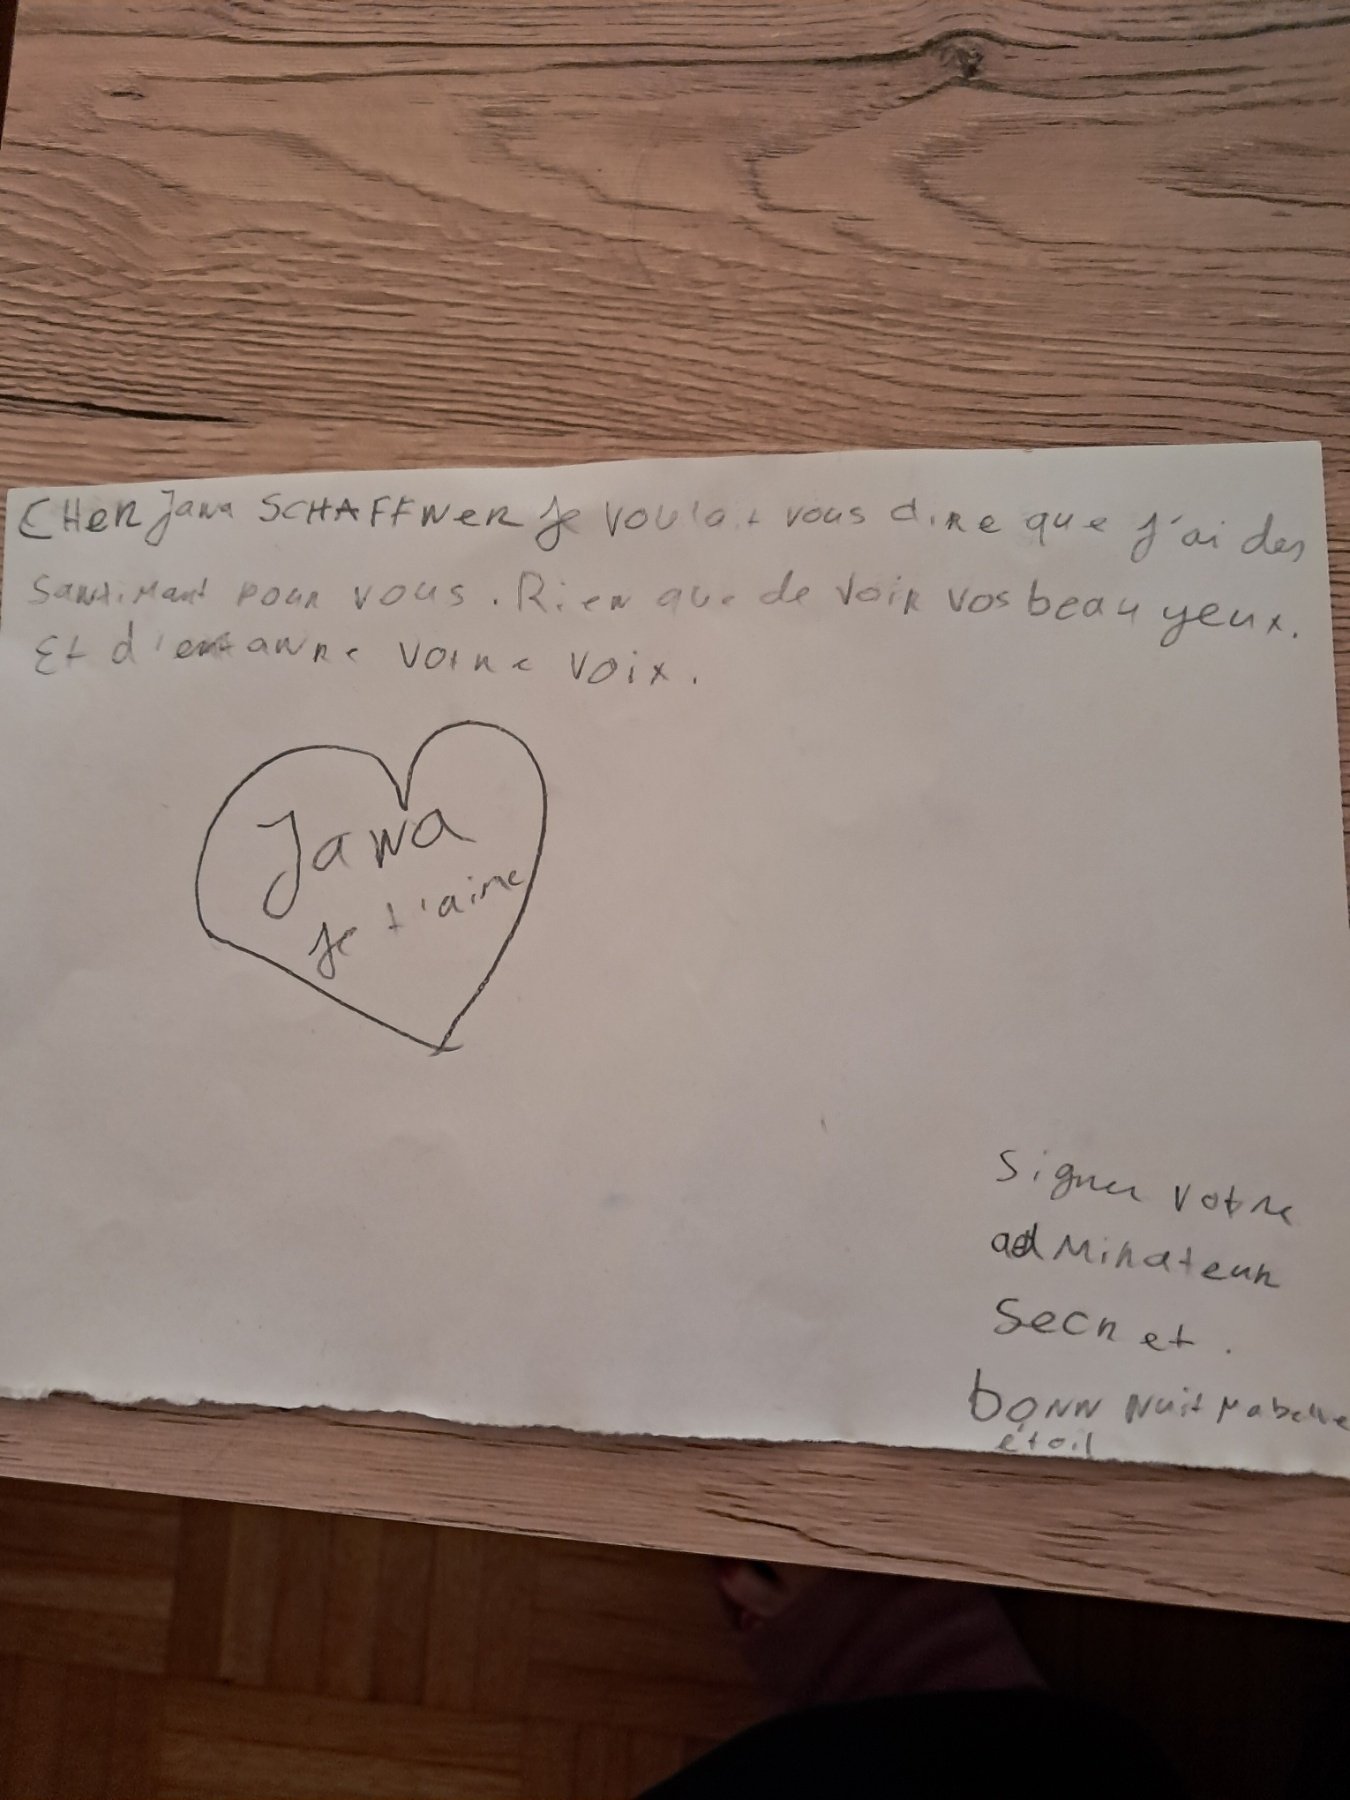 CHER Jana SCHAFFNER Je voulait vous dire que j'ai des
santimant pour vous. Rien que de voir vos beau yeux.
Et d'entanre votre voix.
Jana
Je t'aime
Signer votre
adminateur
secret.
bonn nuit ma belle
étoil